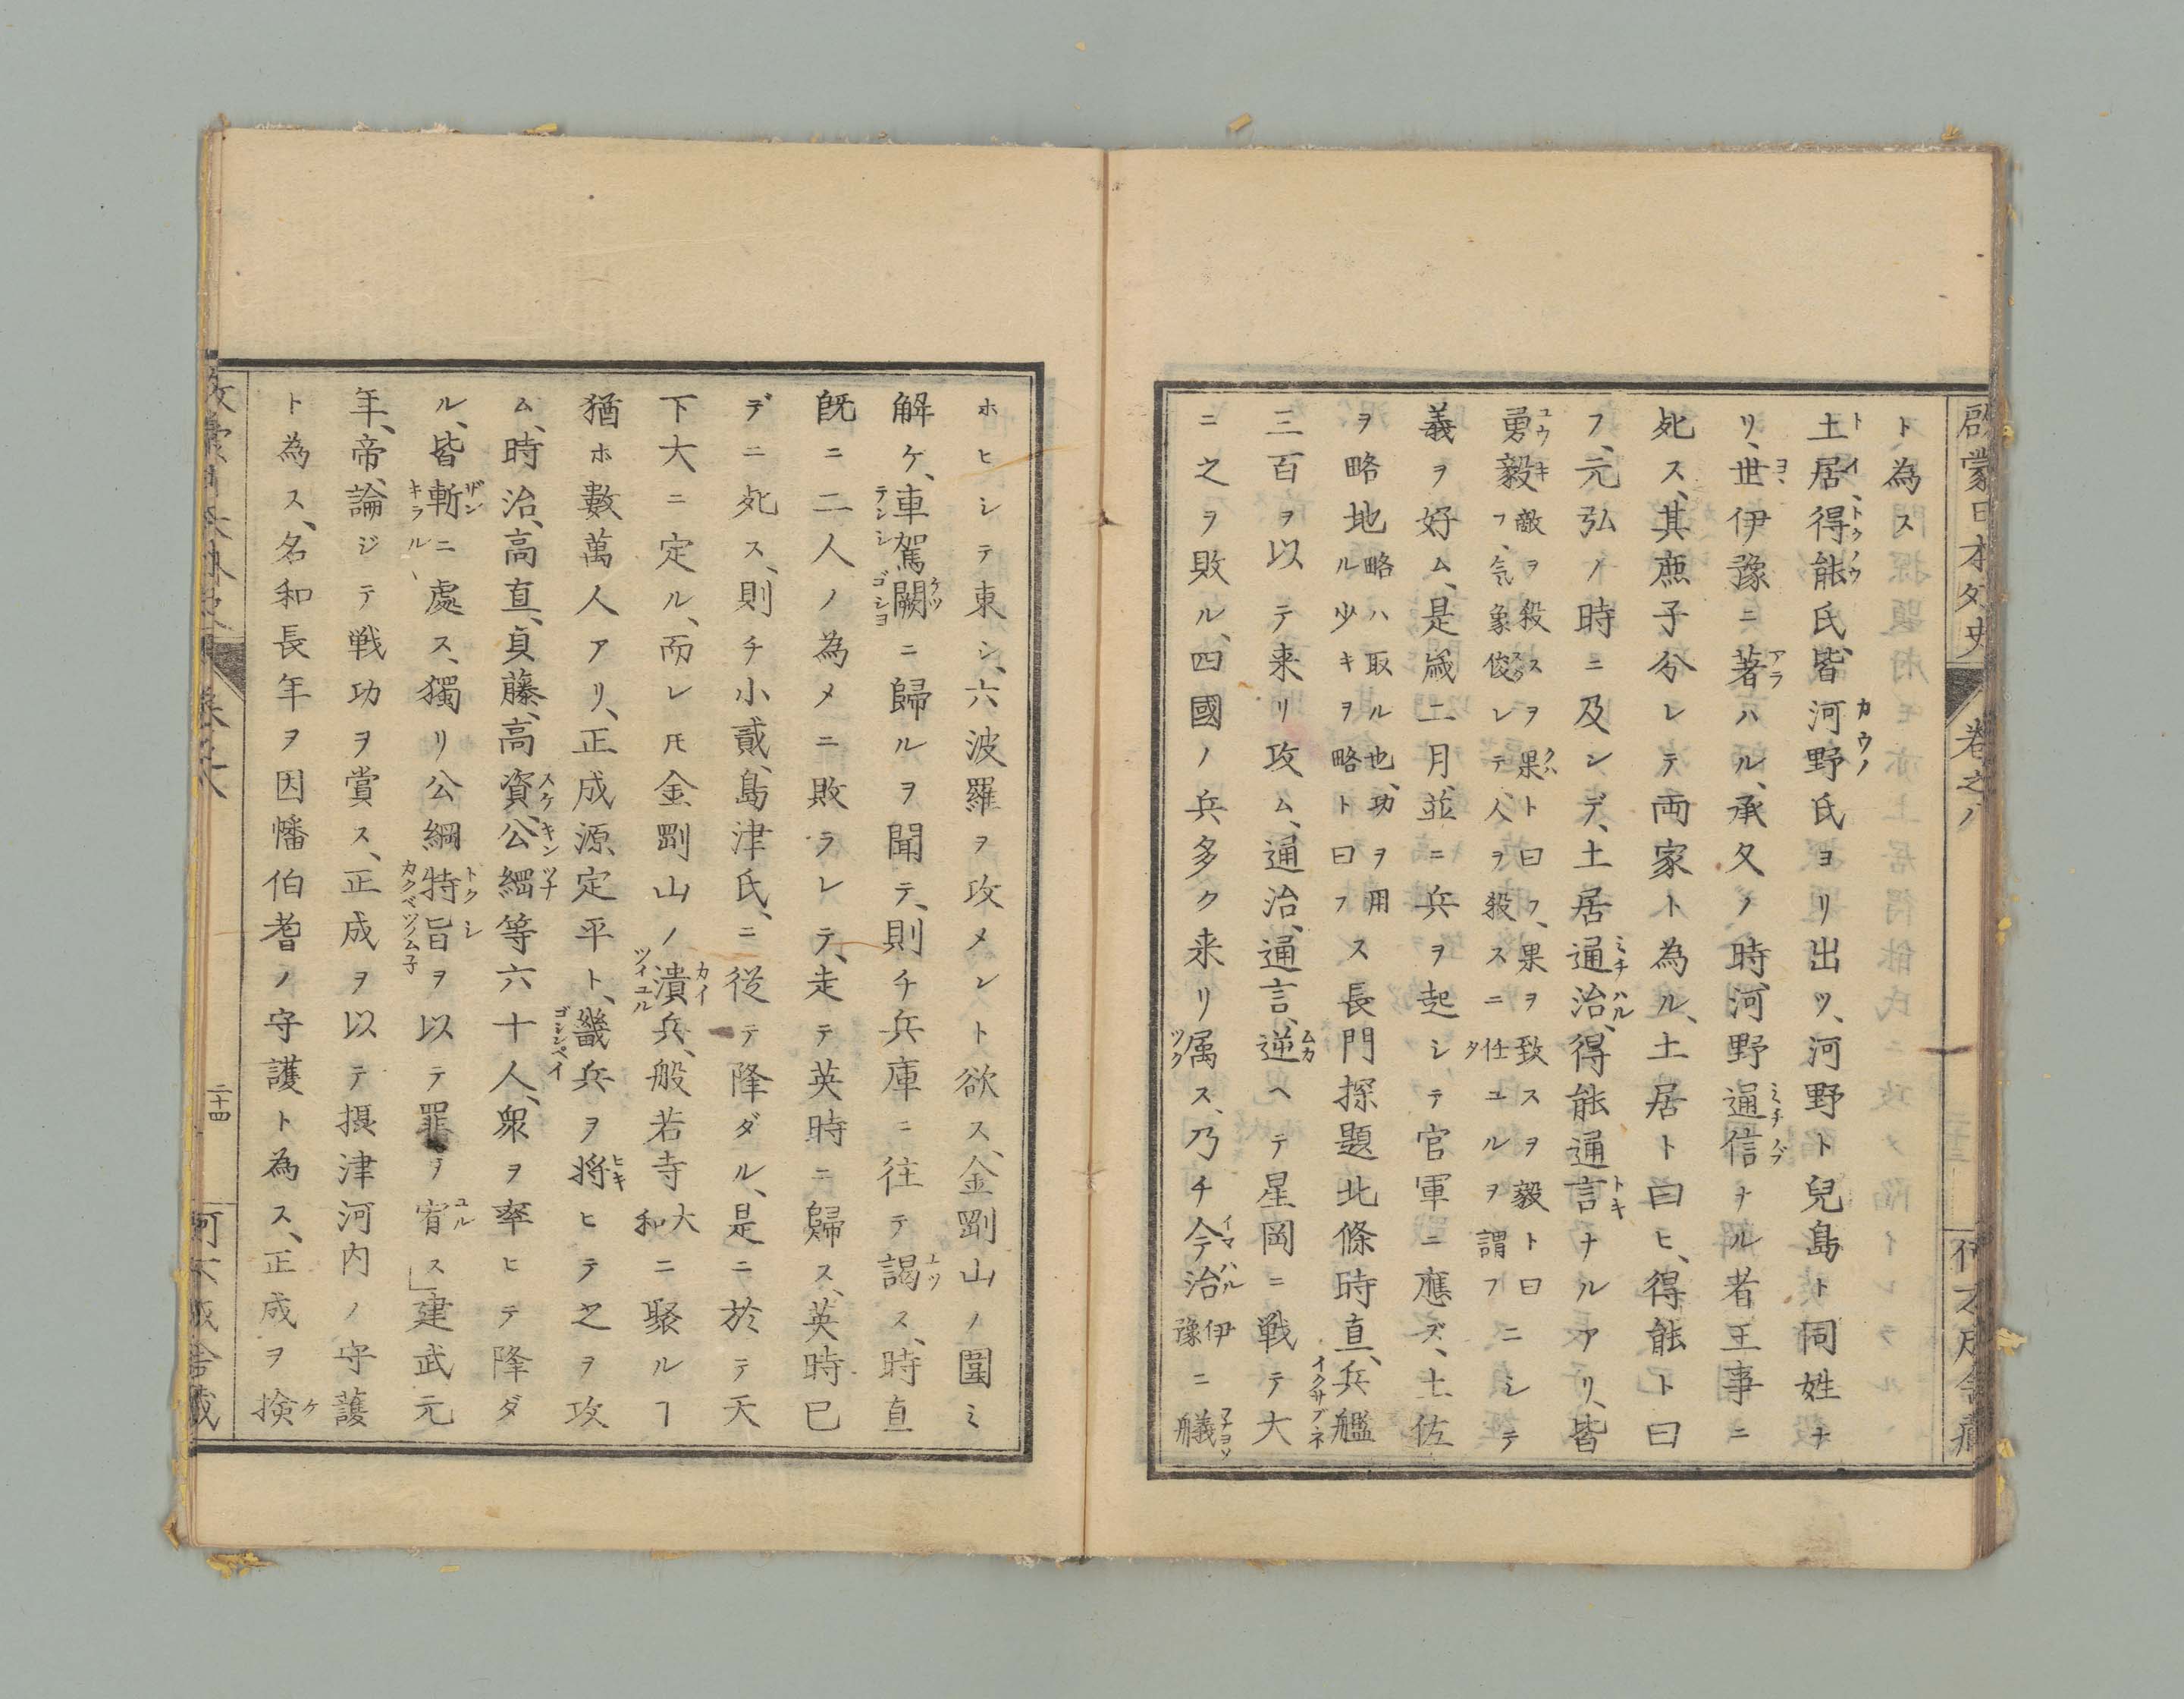 啓蒙日本外史 卷之八
ト為ス
土居、得能氏、皆河野氏ヨリ出ツ、河野ト兒島ト同姓ナ
リ、世伊豫ニ著ハル、承久ノ時、河野通信ナル者王事ニ
死ス、其庶子分レテ両家ト為ル、土居ト曰ヒ、得能ト曰
フ、元弘ノ時ニ及ンデ、土居通治、得能通言ナルアリ、皆
勇毅敵ヲ殺スヲ果ト曰フ、果ヲ致スヲ毅ト曰フ、気象俊レテ人ヲ殺スニ任ユルヲ謂フニシテ
義ヲ好ム、是歳二月、並ニ兵ヲ起シテ官軍ニ應ズ、土佐
ヲ略地略ハ取ル也、功ヲ用ル少キヲ略ト曰フス長門探題北條時直、兵艦
三百ヲ以テ来リ攻ム、通治、通言、逆ヘテ星岡ニ戦テ大
ニ之ヲ敗ル、四國ノ兵多ク来リ属ス、乃チ今治伊豫ニ艤
ホヒシテ東シ、六波羅ヲ攻メント欲ス、金剛山ノ圍ミ
解ケ、車駕闕ニ歸ルヲ聞テ、則チ兵庫ニ往テ謁ス、時直
既ニ二人ノ為メニ敗ラレテ、走テ英時ニ歸ス、英時已
デニ死ス、則チ小貳、島津氏、ニ従テ降ダル、是ニ於テ天
下大ニ定ル、而レ𪜈金剛山ノ潰兵、般若寺大和ニ聚ルヿ
猶ホ數萬人アリ、正成源定平ト、畿兵ヲ将ヒテ之ヲ攻
ム、時治、高直、貞藤、高資、公綱等六十人、衆ヲ率ヒテ降ダ
ル、皆斬ニ處ス、獨リ公綱特旨ヲ以テ罪ヲ宥ス」建武元
年、帝、論ジテ戦功ヲ賞ス、正成ヲ以テ摂津河内ノ守護
ト為ス、名和長年ヲ因幡伯耆ノ守護ト為ス、正成ヲ検
二十四